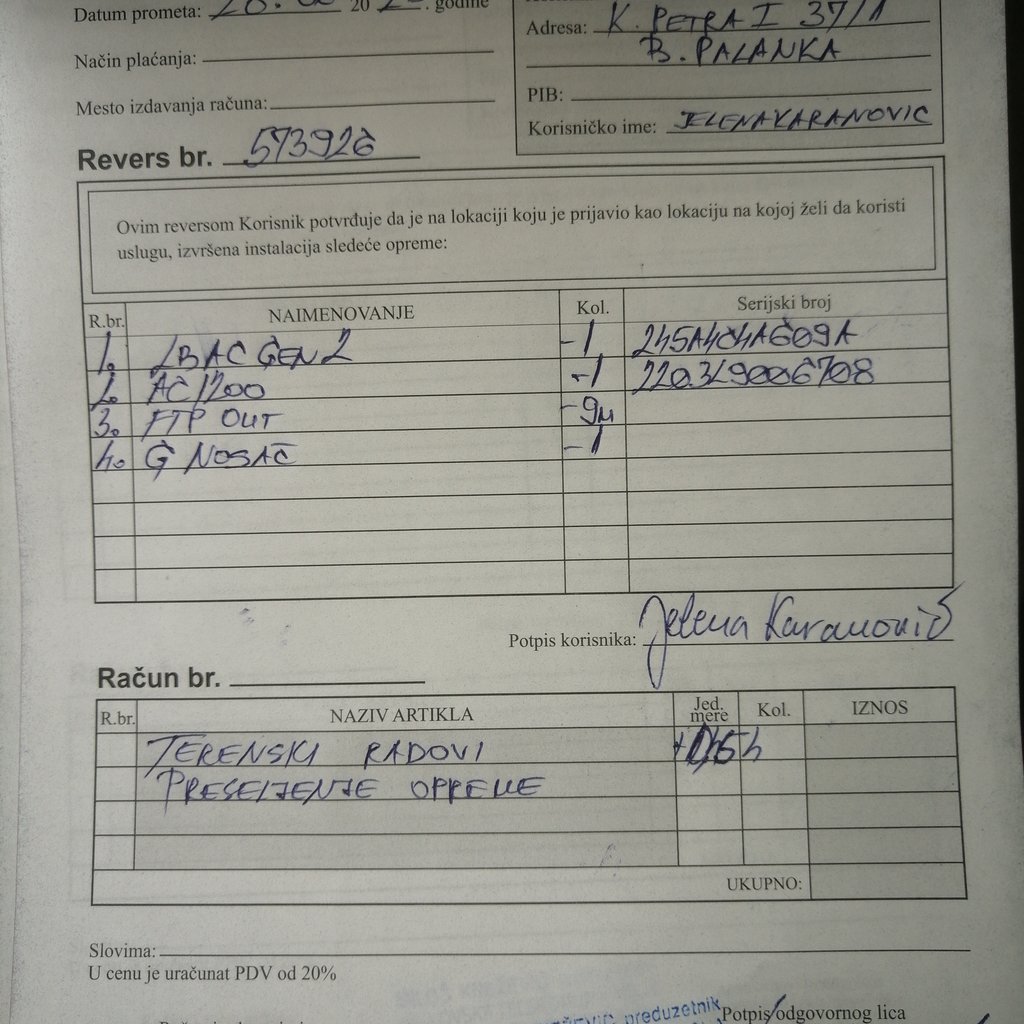 Datum prometa: 20 godine
Adresa: K. PETRA I 37/1
B. PALANKA
Način plaćanja:
Mesto izdavanja računa:
PIB:
Korisničko ime: JELENAKARANOVIC
Revers br. 573926
Ovim reversom Korisnik potvrđuje da je na lokaciji koju je prijavio kao lokaciju na kojoj želi da koristi
uslugu, izvršena instalacija sledeće opreme:
R.br. NAIMENOVANJE Kol. Serijski broj
1. LBAC GEN2 -1 245A4C4A609A
2. AC1200 -1
3. FTP OUT -9M
4. G NOSAČ -1
Potpis korisnika: Jelena Karanović
Račun br.
R.br. NAZIV ARTIKLA Jed. mere Kol. IZNOS
TERENSKI RADOVI
PRESELJENJE OPREME
UKUPNO:
Slovima:
U cenu je uračunat PDV od 20%
preduzetnik
Potpis odgovornog lica